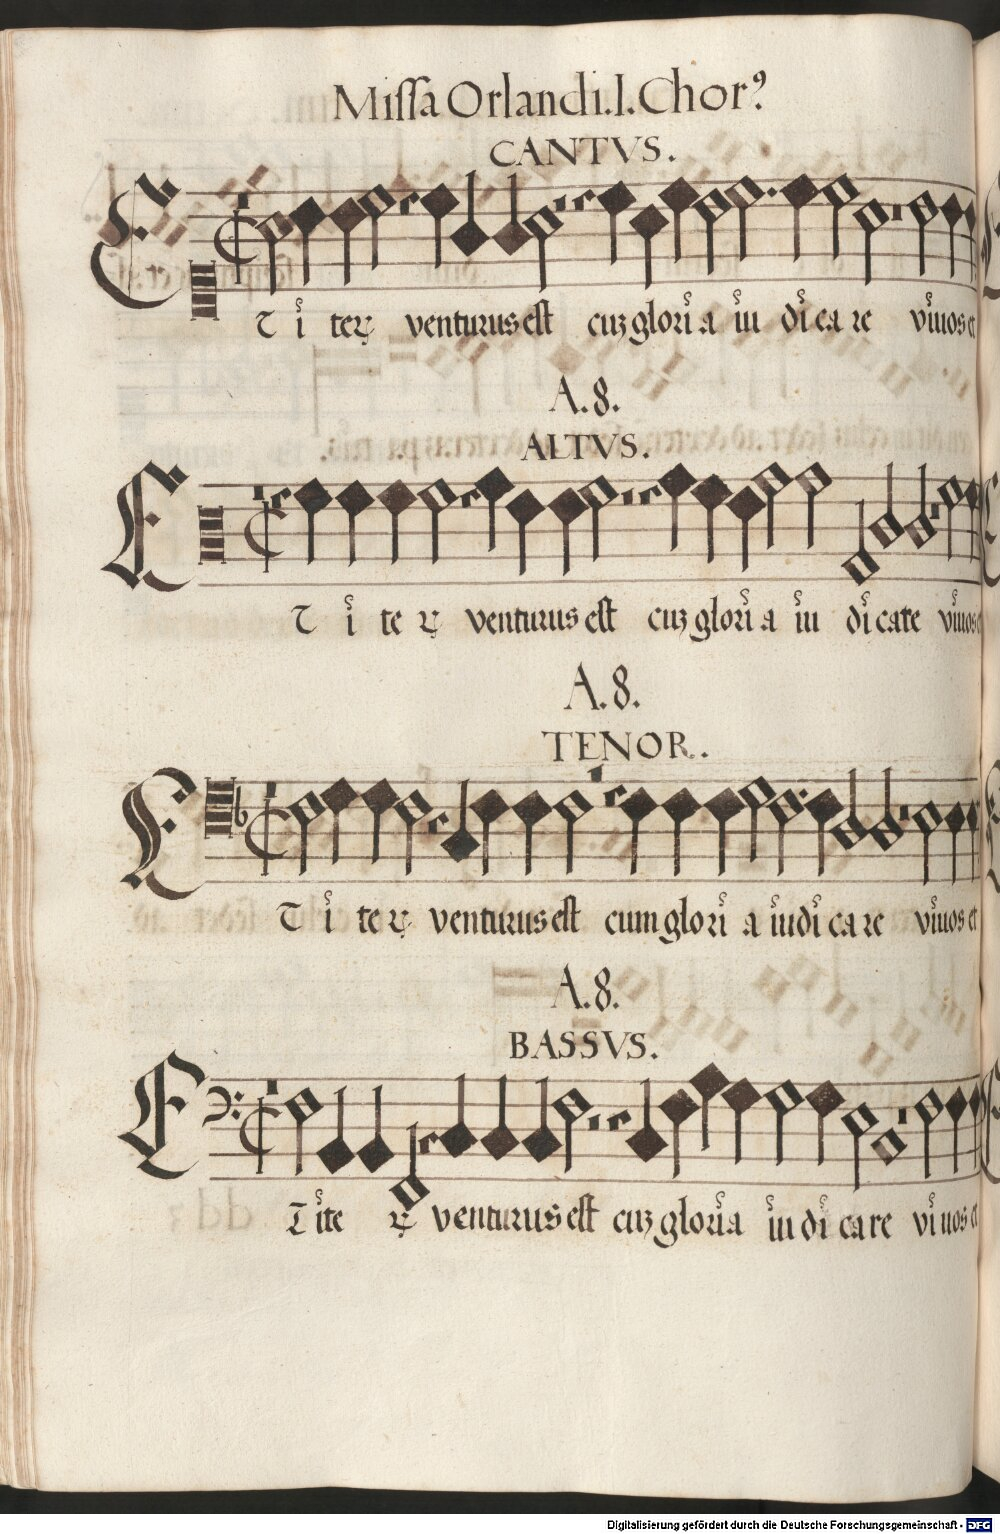 Missa Orlandi. I. Chorꝰ
CANTVS.
E T i terꝝ venturus est cuꝫ gloria iu dicare viuos et
A. 8.
ALTVS.
E T i te rꝝ venturus est cuꝫ gloria iu dicare viuos
A. 8.
TENOR.
E T i te rꝝ venturus est cum glori a iudi ca re viuos et
A. 8.
BASSVS.
E T ite rꝝ venturus est cuꝫ gloria iu di ca re vi uos et
Digitalisierung gefördert durch die Deutsche Forschungsgemeinschaft - DFG